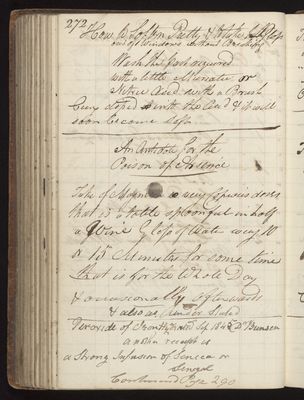 272
How to Soften Putty & take
out of Windows without Breaking
Wash the part required
with a little Muriatic or
Nitric Acid with a Brush
Dipped with the Acid & it will
soon become soft
An Antidote for the
Poison of Arsenic
Take of Magnesia in very Copious doses
that is a table spoonful in half
a Wine Glass of Water every 10
or 15 Minutes for some time
that is for the Whole Day
& occasionally afterwards
& also as under Stated
Peroxide of Iron Hydrated Sep 1845 Dr Bunsen
another receipt is
a Strong Infusion of Seneca or
Senega
Continued Page 290